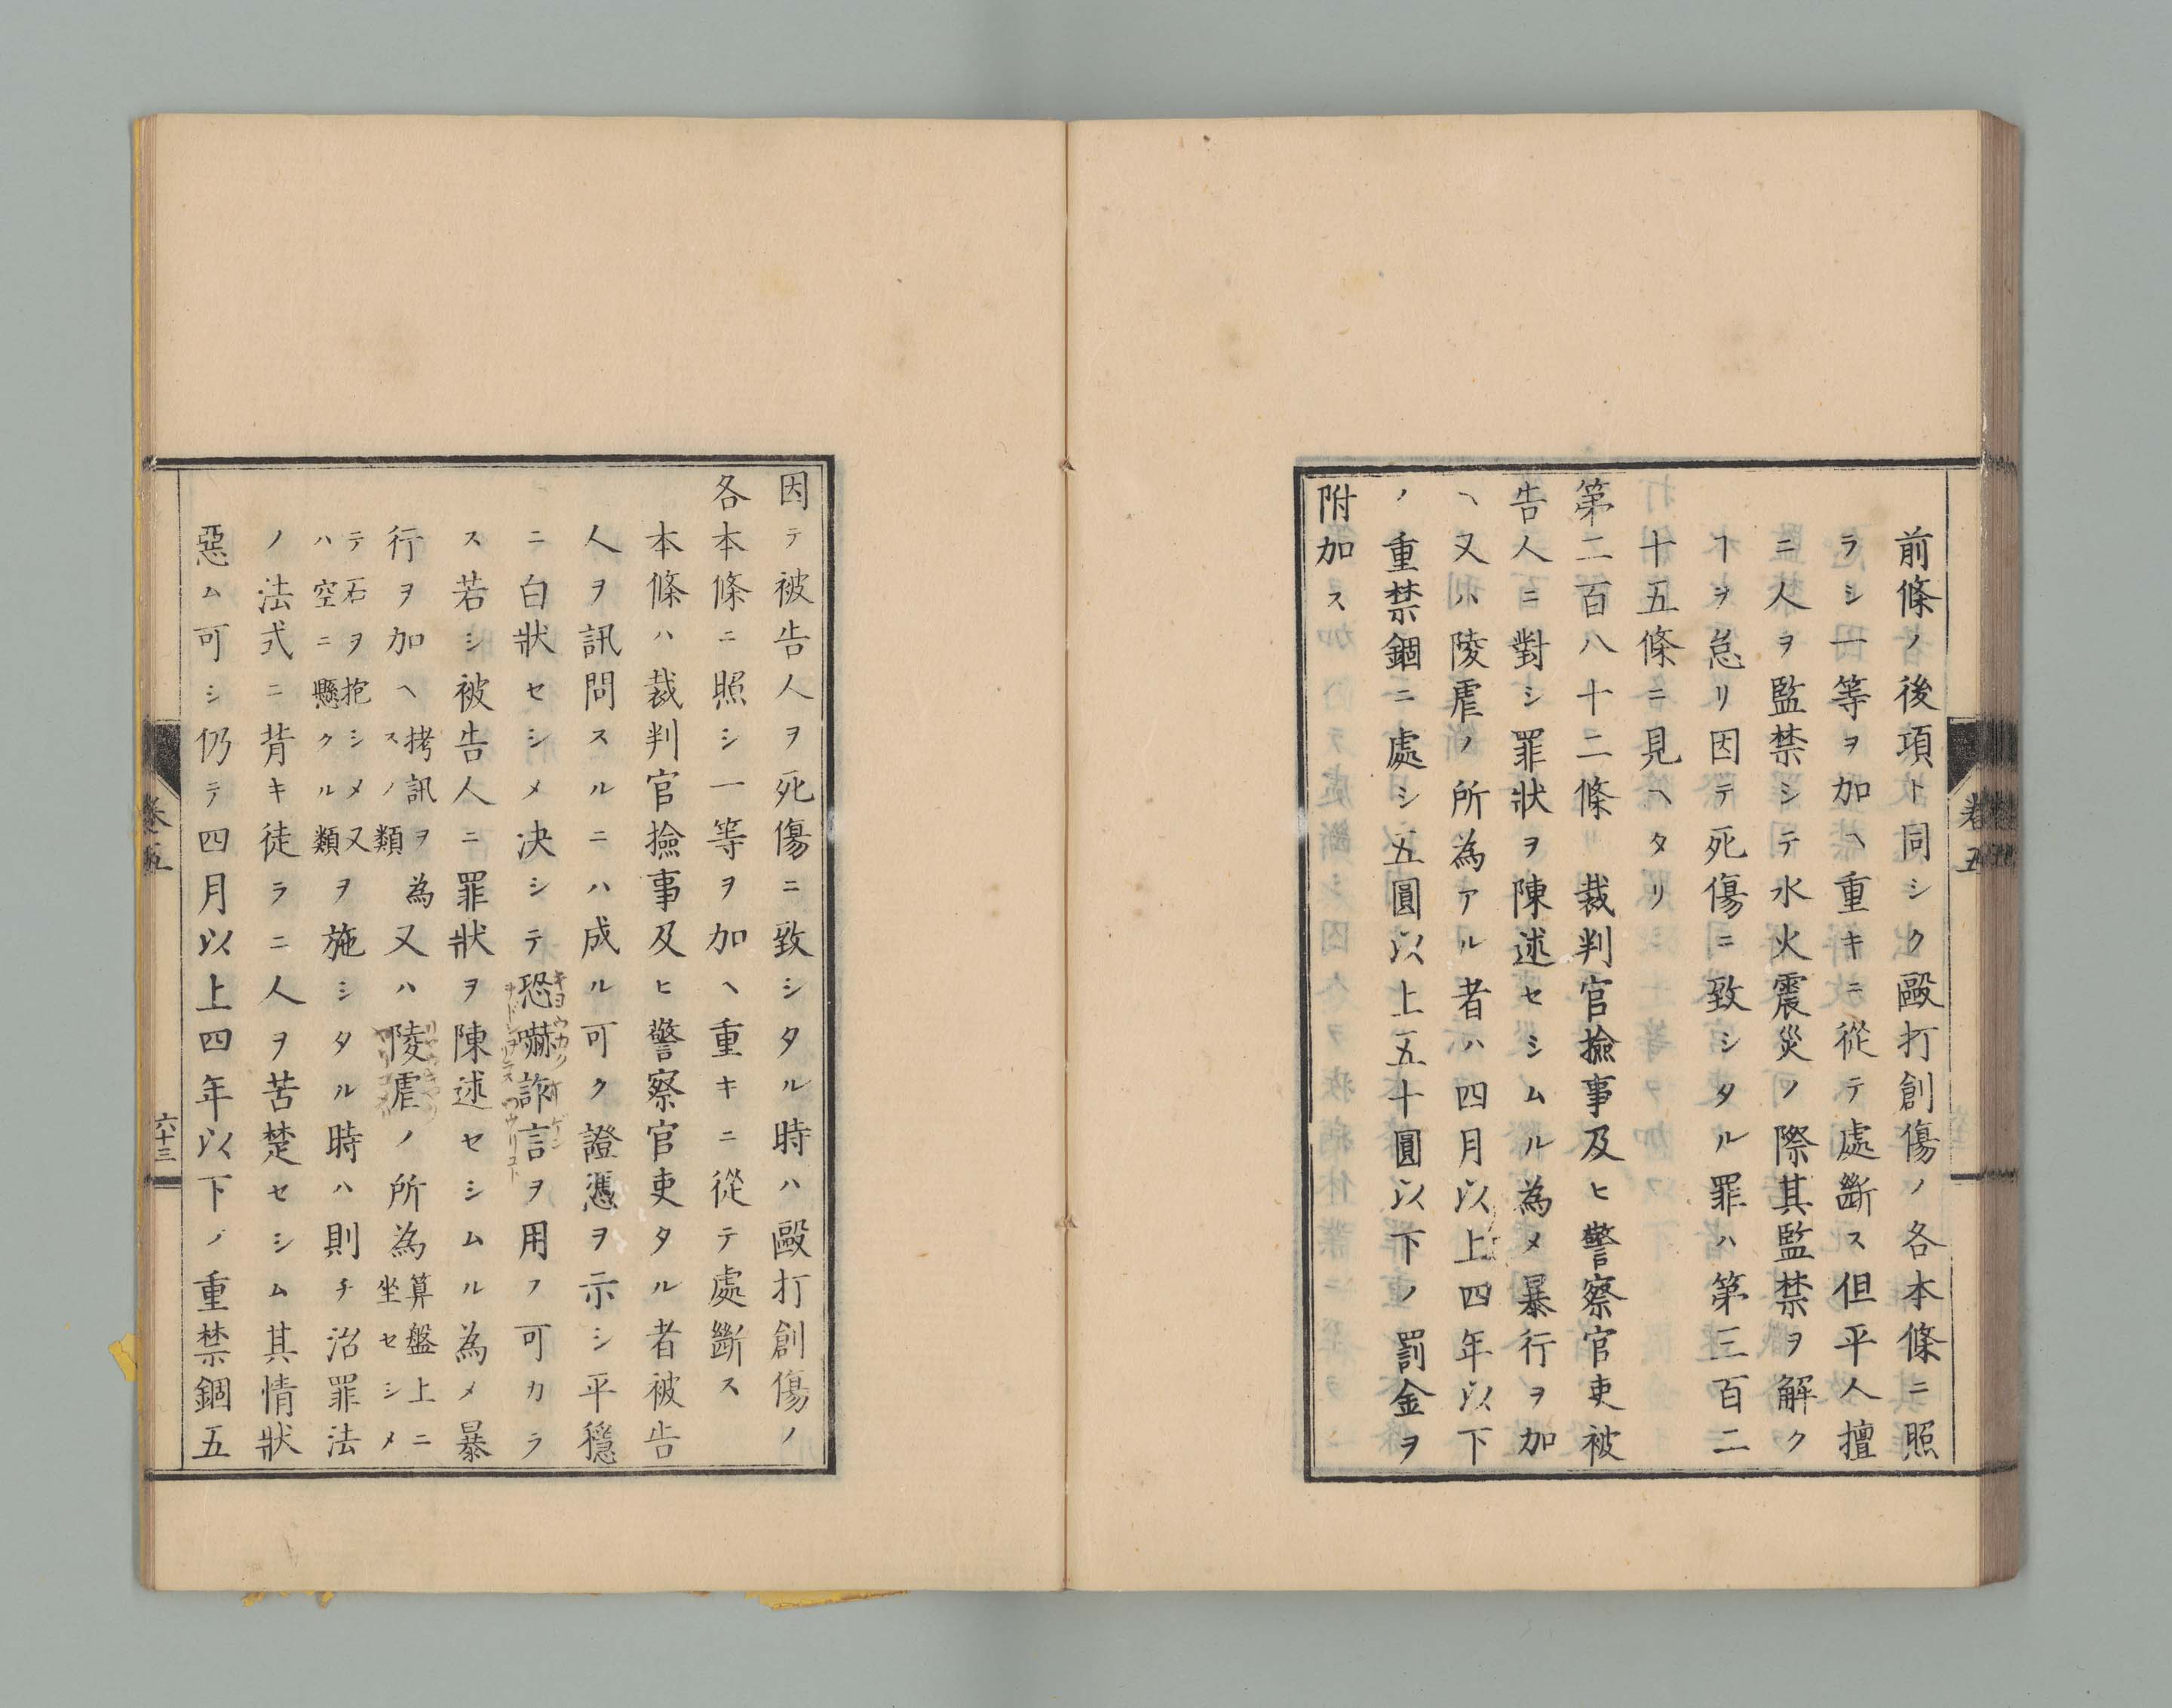 前條ノ後項ト同シク毆打創傷ノ各本條ニ照
ラシ一等ヲ加ヘ重キニ從テ處斷ス但平人擅
ニ人ヲ監禁シテ水火震災ノ際其監禁ヲ解ク
ヿヲ怠リ因テ死傷ニ致シタル罪ハ第三百二
十五條ニ見ヘタリ
第二百八十二條 裁判官撿事及ヒ警察官吏被
告人ニ對シ罪狀ヲ陳述セシムル為メ暴行ヲ加
ヘ又ハ陵虐ノ所為アル者ハ四月以上四年以下
ノ重禁錮ニ處シ五圓以上五十圓以下ノ罰金ヲ
附加ス
卷五
因テ被告人ヲ死傷ニ致シタル時ハ毆打創傷ノ
各本條ニ照シ一等ヲ加ヘ重キニ從テ處斷ス
本條ハ裁判官撿事及ヒ警察官吏タル者被告
人ヲ訊問スルニハ成ル可ク證憑ヲ示シ平穩
ニ白狀セシメ决シテ恐嚇詐言ヲ用フ可カラ
ス若シ被告人ニ罪狀ヲ陳述セシムル為メ暴
行ヲ加ヘ拷訊ヲ為スノ類又ハ陵虐ノ所為算盤上ニ坐セシメ
テ石ヲ抱シメ又ハ空ニ懸クル類ヲ施シタル時ハ則チ治罪法
ノ法式ニ背キ徒ラニ人ヲ苦楚セシム其情狀
惡ム可シ仍テ四月以上四年以下ノ重禁錮五
卷五
六十三